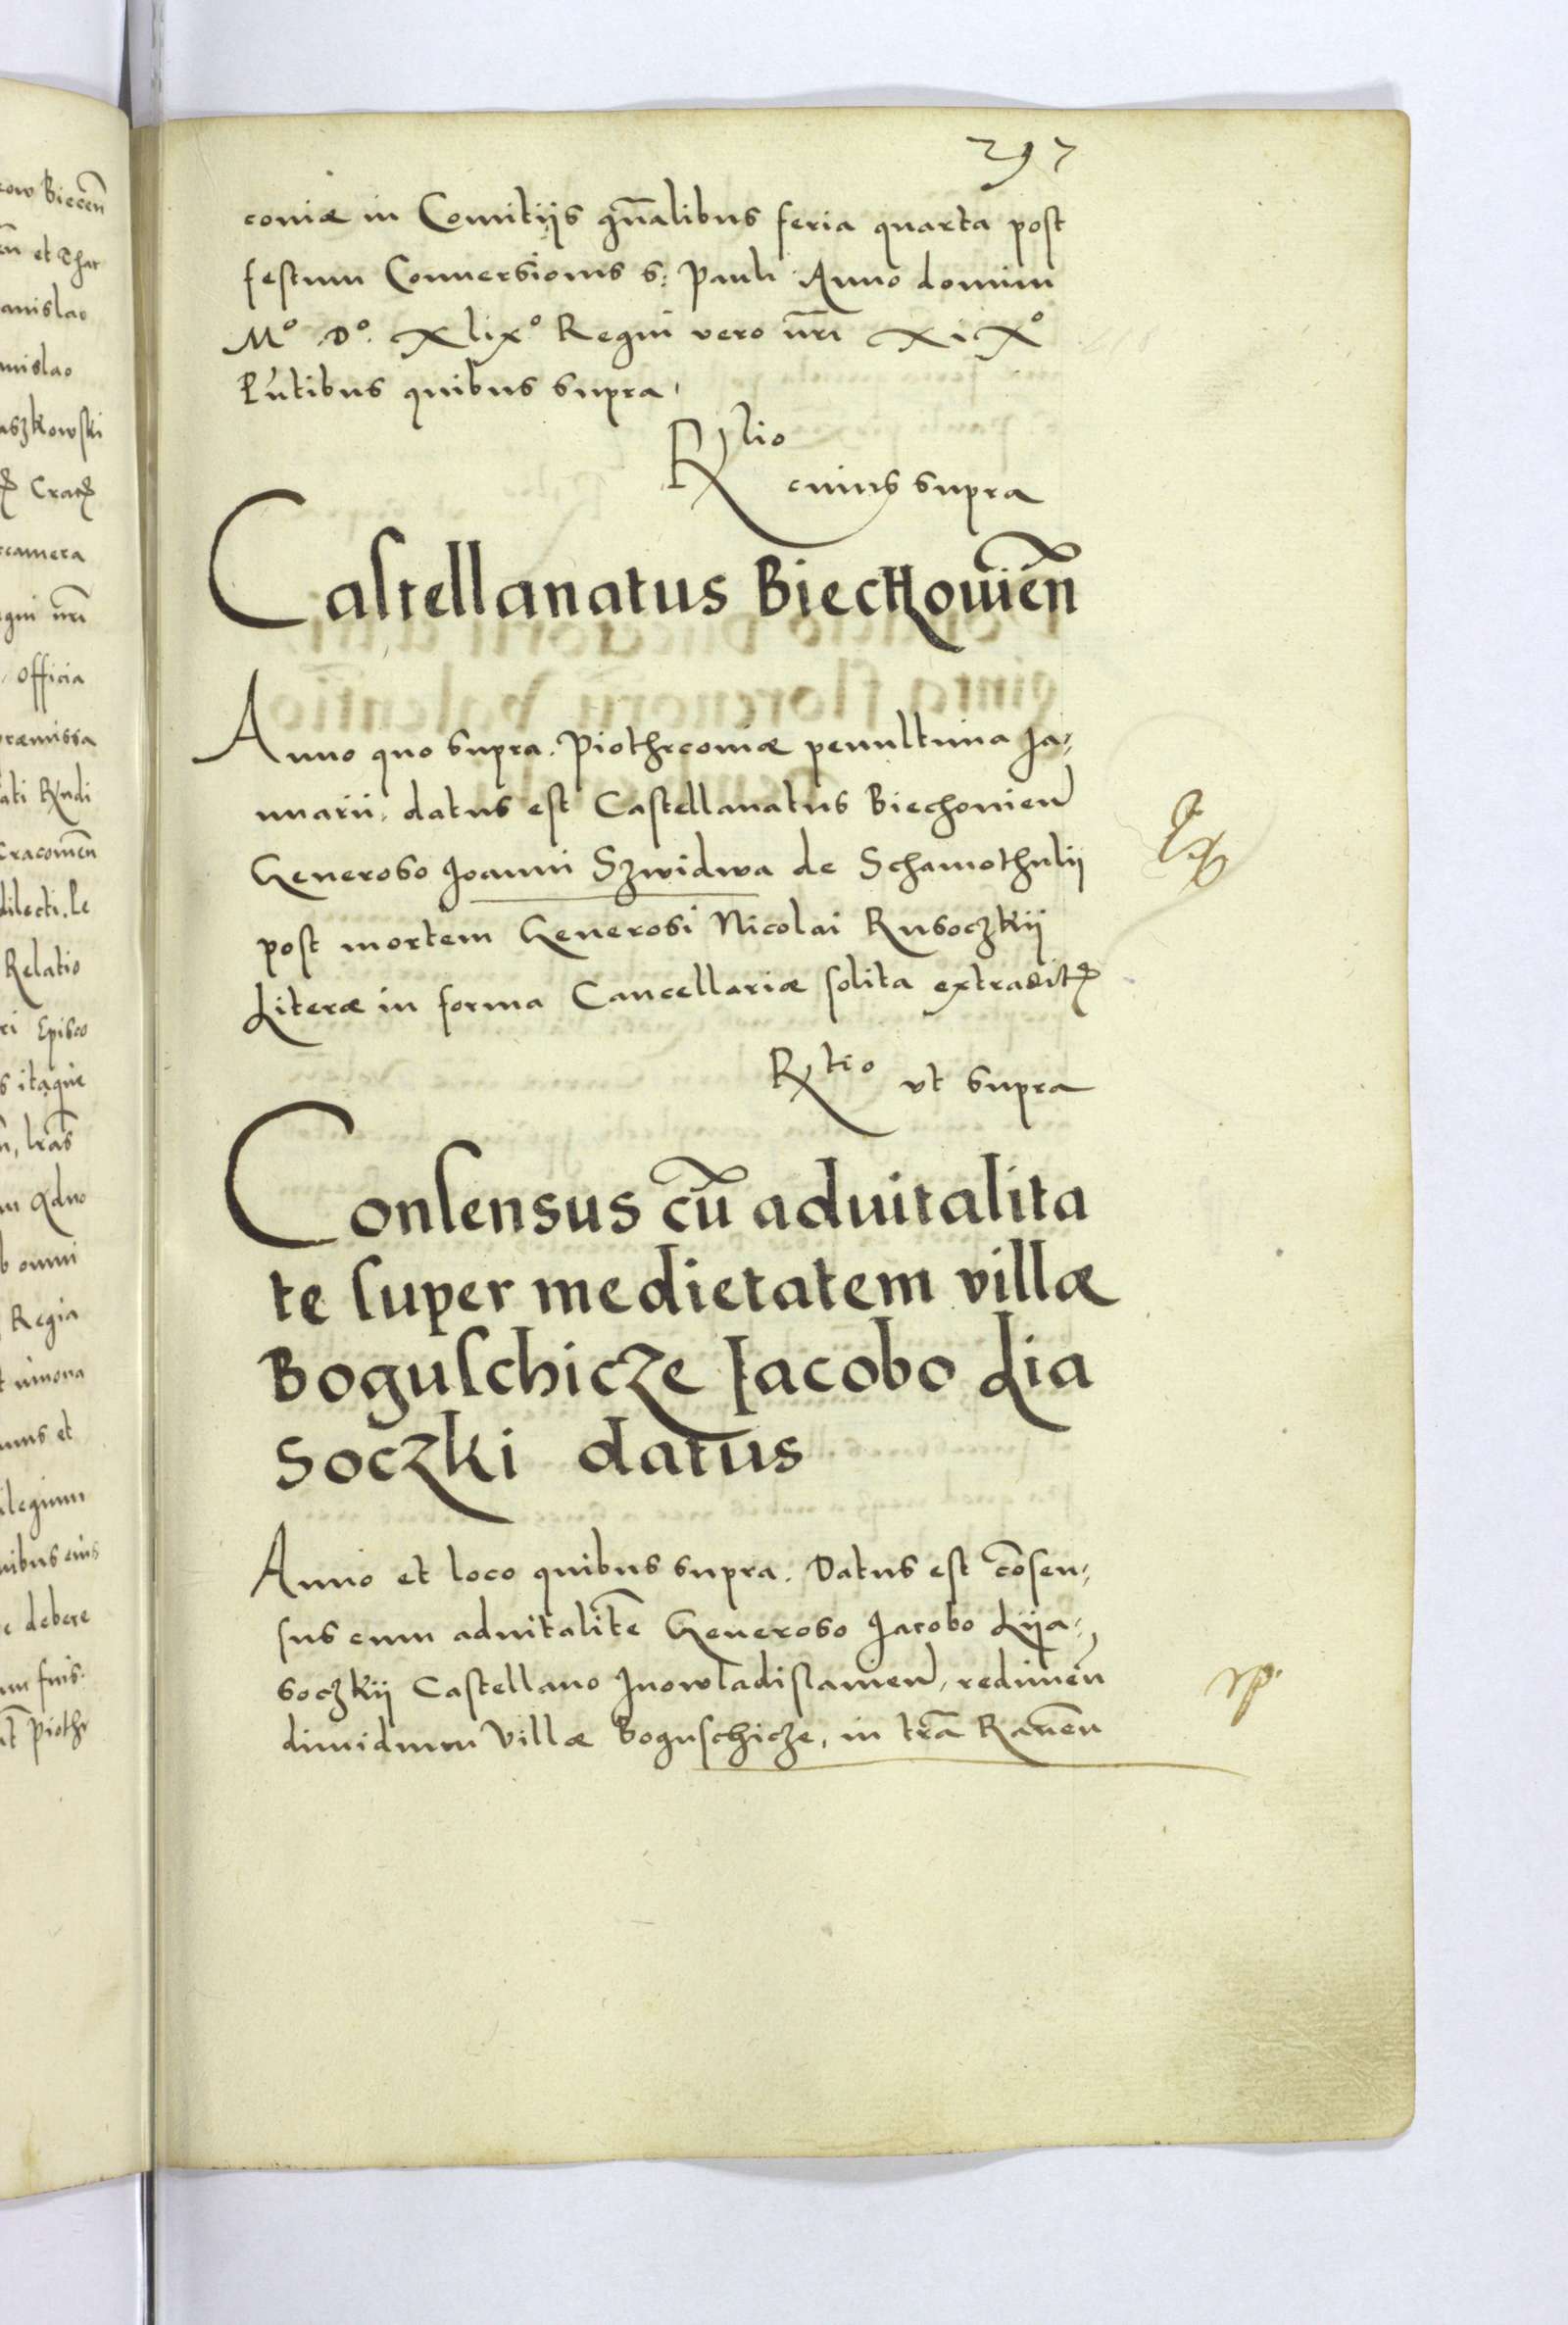 297
coniæ in Comitijs gn̄alibus feria quarta post
festum Conuersionis s: Pauli Anno domini
Mº Dº Xlixº Regni vero n̄ri XiXº
Pn̄tibus quibus supra.
Rlio
cuius supra
Castellanatus Biechouien̄
Anno quo supra. Piothrcouiæ penultima Ja,
nuarii, datus est Castellanatus Biechouien̄
Generoso Joanni Szwidwa de Schamothulij
post mortem Generosi Nicolai Rusoczkij
Literæ in forma Cancellariæ solita extradit
Rtio vt supra
Consensus cū aduitalita
te super medietatem villæ
Boguschicze Iacobo Lia
Soczki datus
Anno et loco quibus supra. Datus est cōsen,
sus cum aduitalitē Generoso Jacobo Lija,
soczkij Castellano Jnowladislauien̄, redimen̄
dimidium Villæ Boguschicze, in trā Rauen̄
ow Biecen̄
n̄ et Thar
anislao
nislao
aszkowski
Crac
camera
gni n̄ri
officia
præmissa
ati Rndi
Cracouien̄
dilecti. Le
Relatio
ri Episco
s itaque
, lrās
b omni
Regia
ilegium
nibus eius
e debere
Piothr